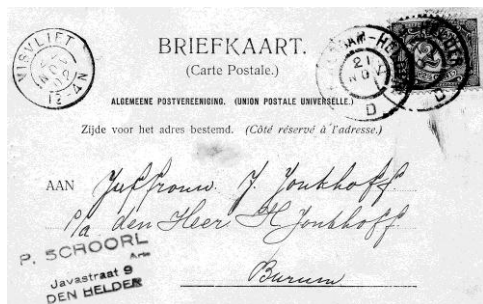 VISVLIET
NOV
12
4N
BRIEFKAART.
(Carte Postale.)
21
NOV
D
ALGEMEENE POSTVEREENIGING. (UNION POSTALE UNIVERSELLE.)
Zijde voor het adres bestemd. (Côté réservé à l'adresse.)
AAN Juffrouw J. Jonkhoff
p/a den Heer H Jonkhoff
Burum
P. SCHOORL
Arts
Javastraat 9
DEN HELDER